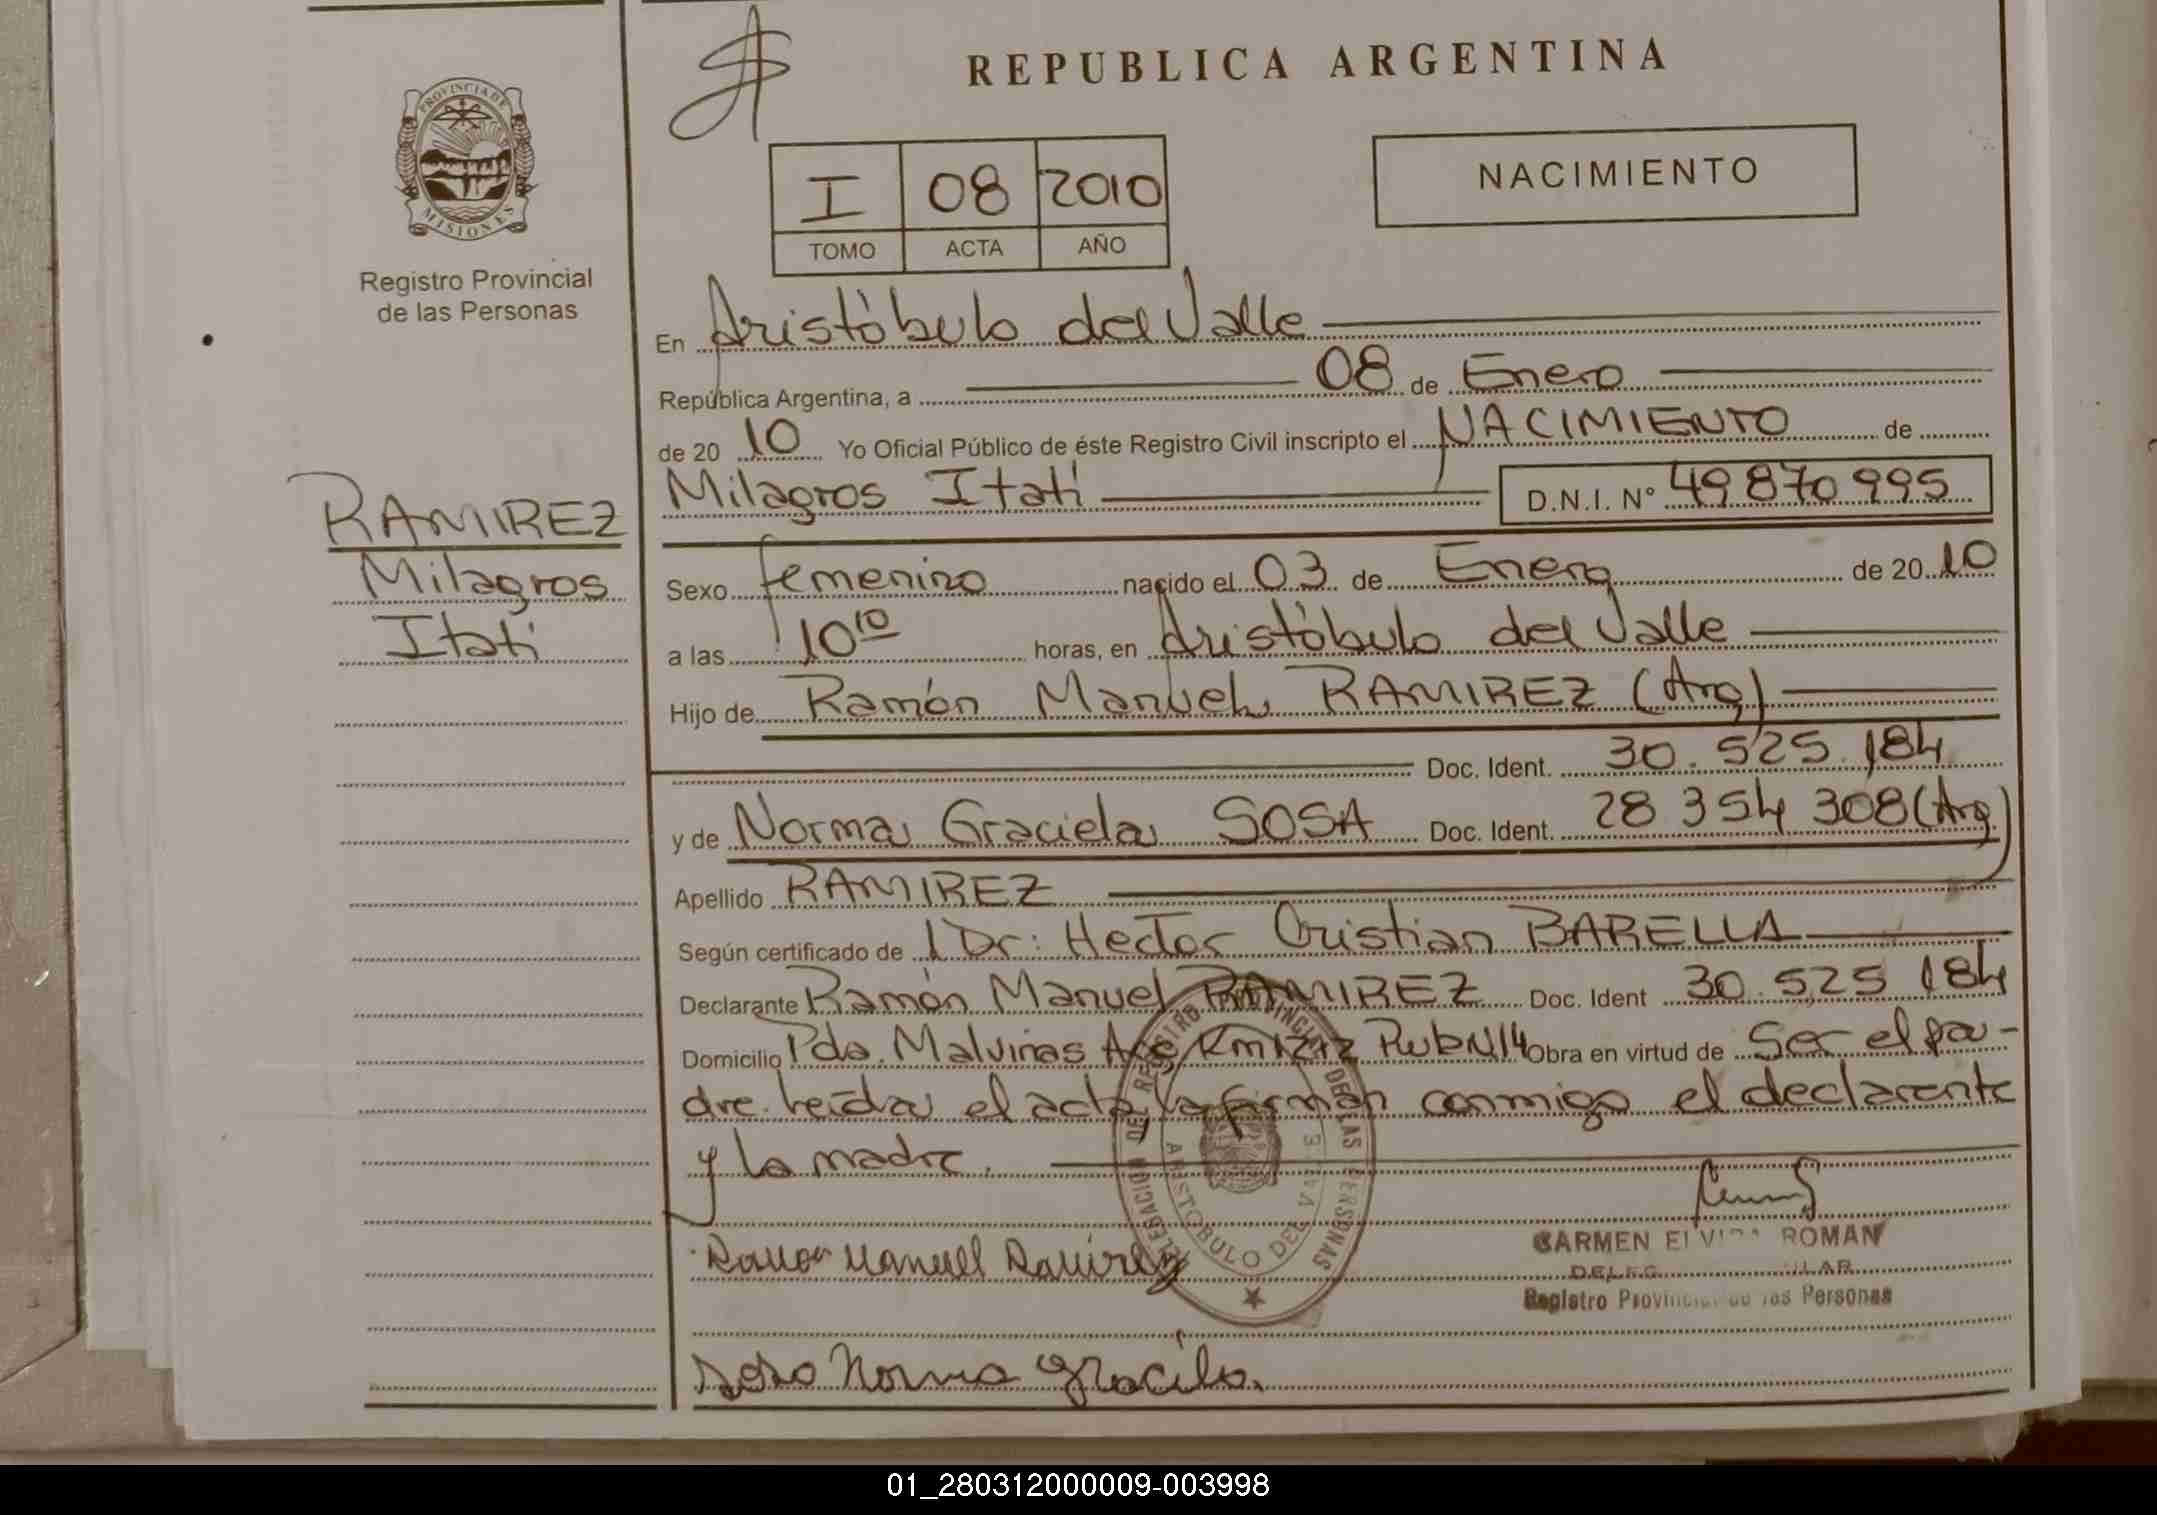 REPUBLICA ARGENTINA
PROVINCIA DE
MISIONES
Registro Provincial
de las Personas
I 08 2010
TOMO ACTA AÑO
NACIMIENTO
En Aristóbulo del Valle
República Argentina, a 08 de Enero
de 20 10 Yo Oficial Público de éste Registro Civil inscripto el NACIMIENTO de
Milagros Itatí D.N.I. N° 49870995
RAMIREZ
Milagros
Itatí
Sexo femenino nacido el 03 de Enero de 20 10
a las 10 10 horas, en Aristóbulo del Valle
Hijo de Ramón Manuel RAMIREZ (Arg)
Doc. Ident. 30.525.184
y de Norma Graciela SOSA Doc. Ident. 28 354 308 (Arg)
Apellido RAMIREZ
Según certificado de Dr: Hector Cristian BARELLA
Declarante Ramón Manuel RAMIREZ Doc. Ident 30.525 184
Domicilio Pda. Malvinas Arg Km 1212 Rub N14 Obra en virtud de Ser el pa-
dre. Leída el acta la firman conmigo el declarante
y la madre.
REGISTRO PROVINCIAL DE LAS PERSONAS
ARISTOBULO DEL VALLE
Ramon Manuel Ramirez
CARMEN ROMAN
Registro Provincial de las Personas
Sosa Norma Gracila.
01_280312000009-003998